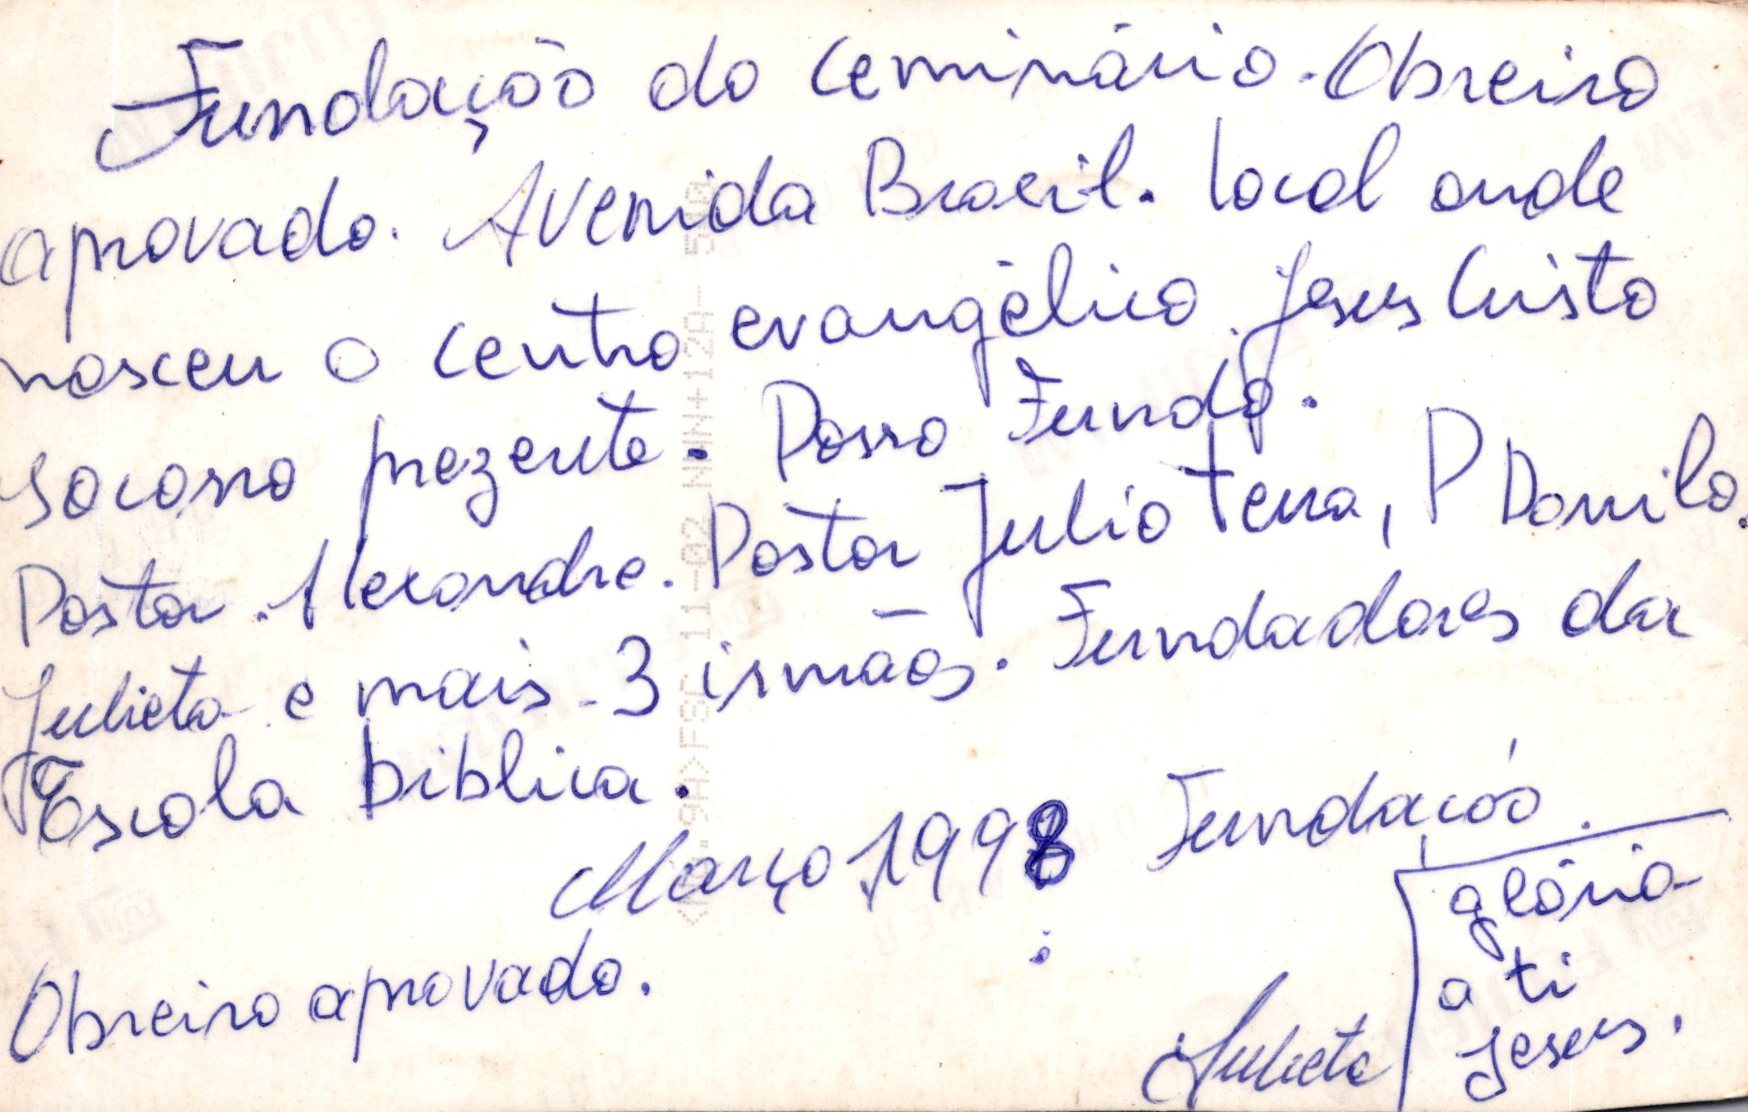 Fundação do Ceminário. Obreiro
aprovado. Avenida Brasil. local onde
nasceu o centro evangélico Jesus Cristo
socorro prezente. Passo Fundo.
Pastor Alexandre. Pastor Julio Terra, P Danilo.
Julieta e mais 3 irmãos. Fundadores da
Escola biblica.
Março 1998 Fundação.
Obreiro aprovado.
Julieta
glória
a ti
Jesus.